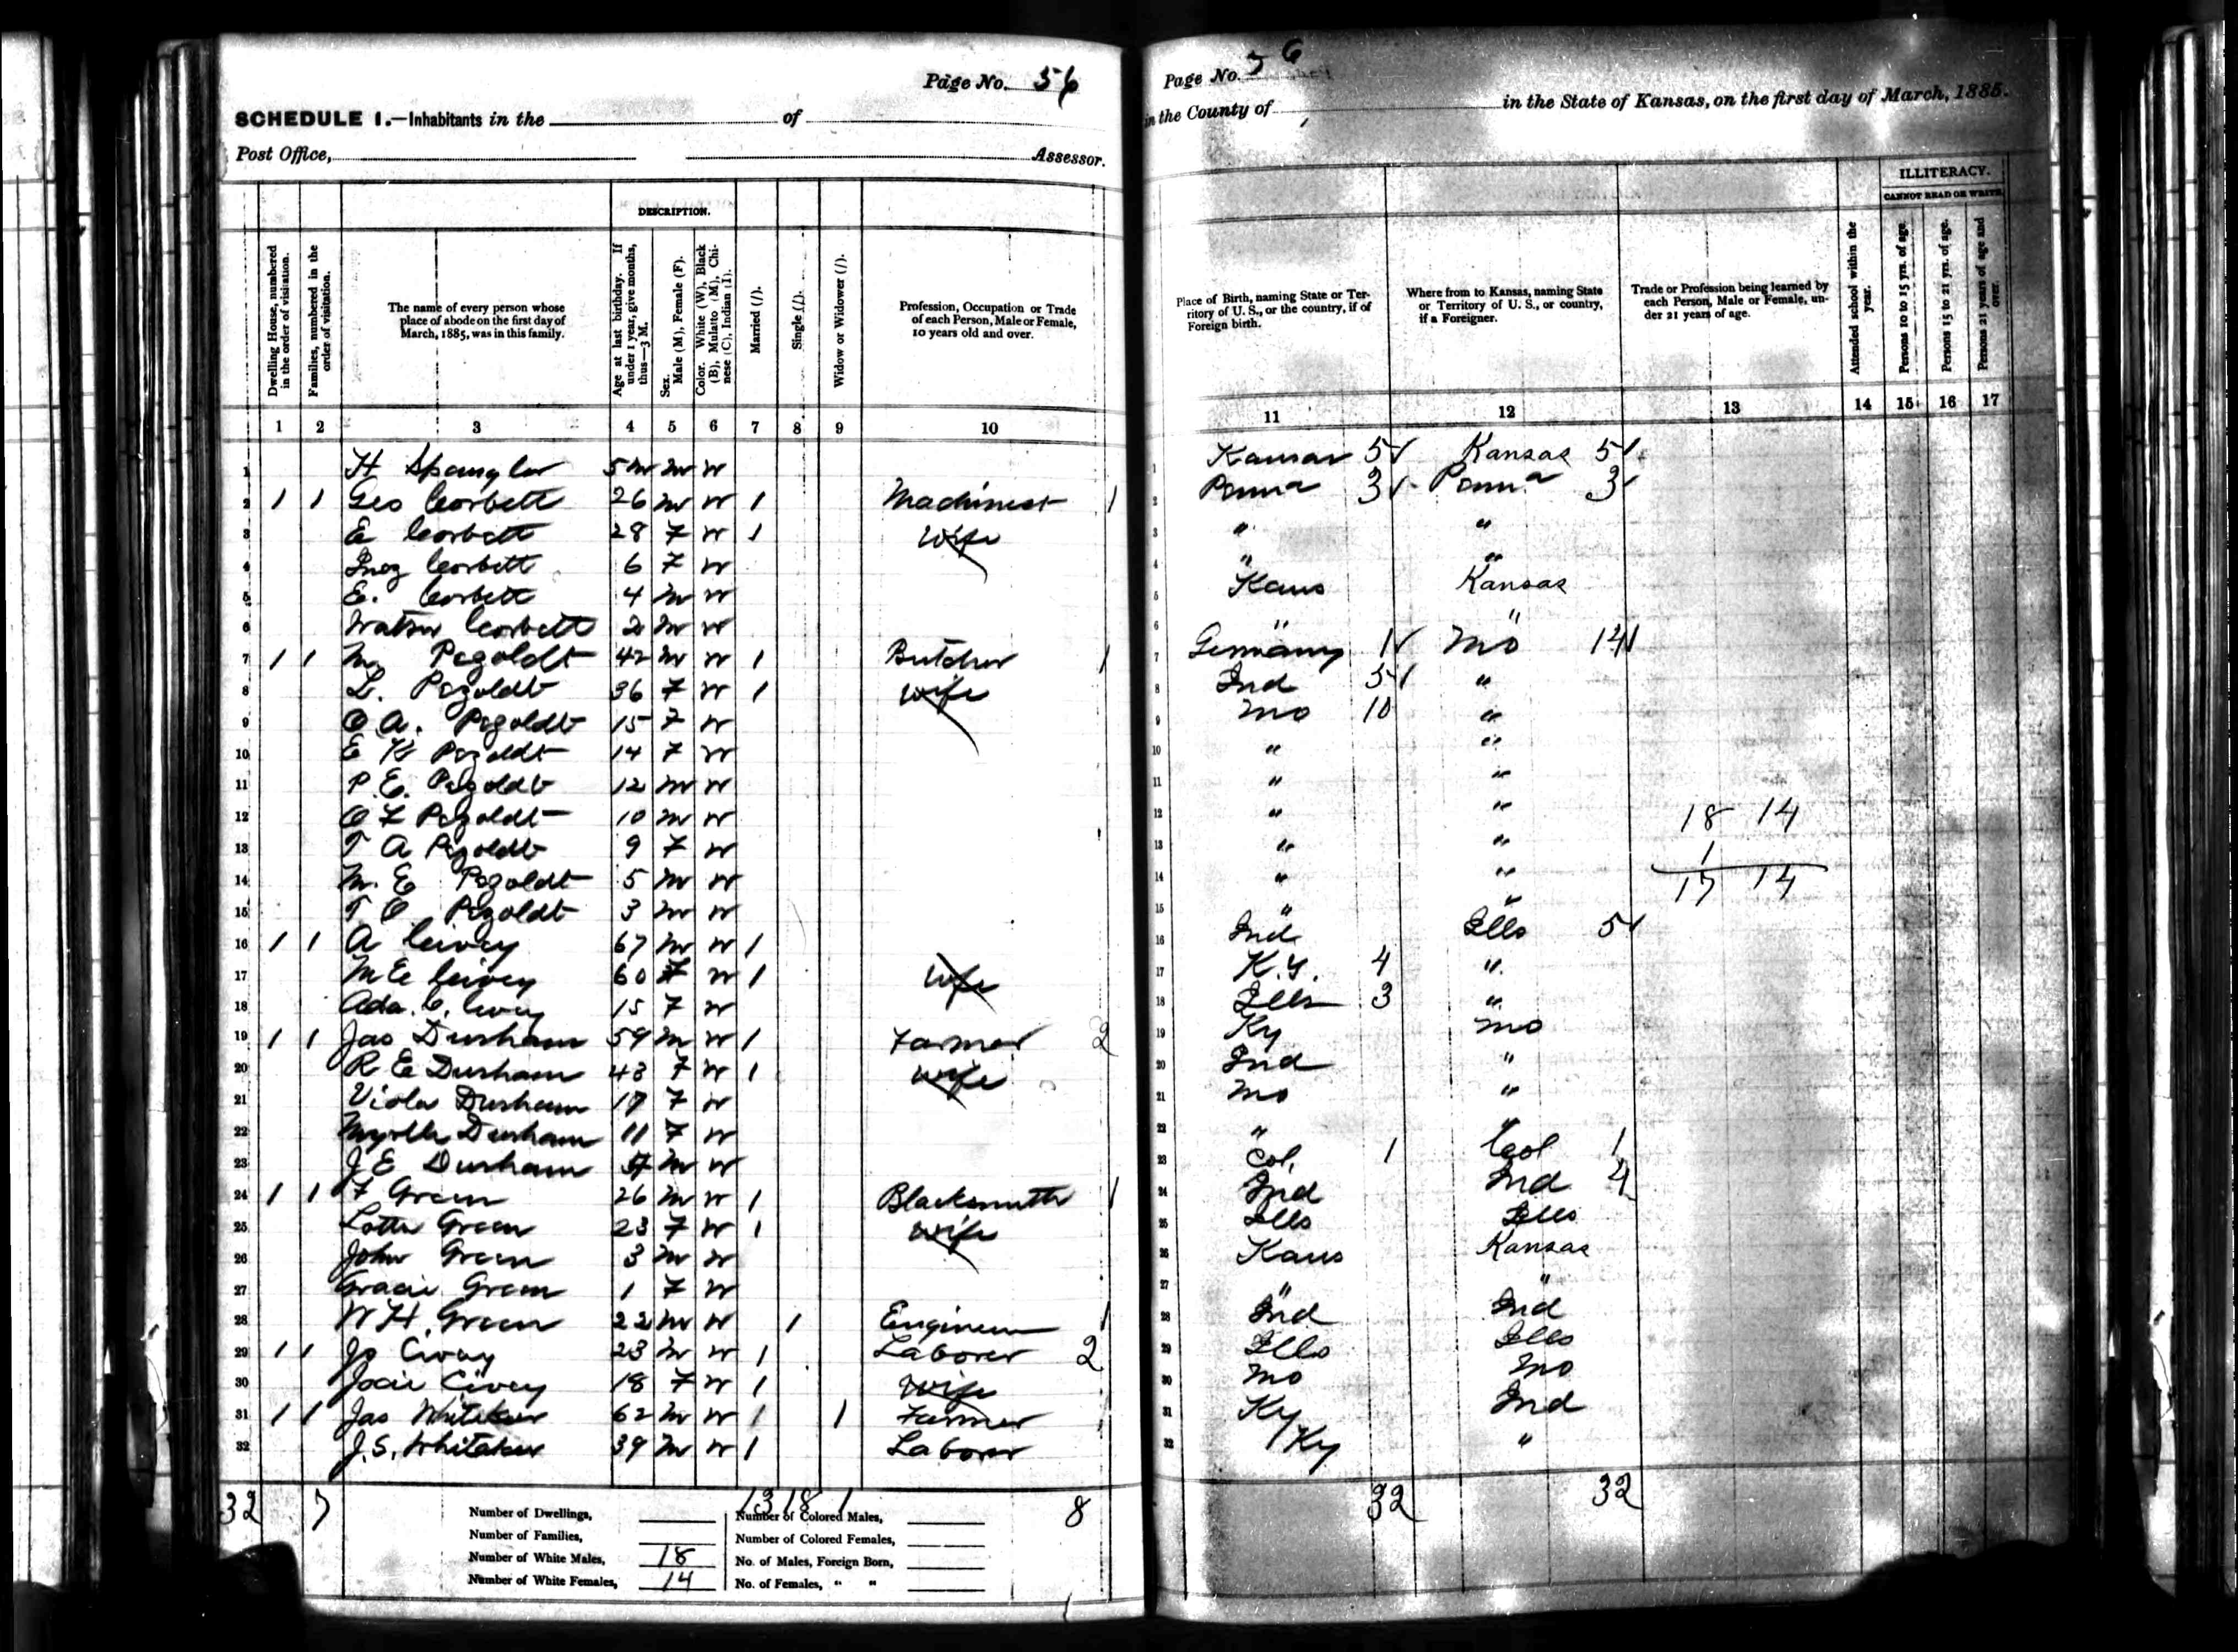 Page No. 56
SCHEDULE 1.—Inhabitants in the of
Post Office, Assessor.
DESCRIPTION.
Dwelling House, numbered in the order of visitation.
Families, numbered in the order of visitation.
The name of every person whose place of abode on the first day of March, 1885, was in this family.
Age at last birthday. If under 1 year, give months, thus—3 M.
Sex. Male (M), Female (F).
Color. White (W), Black (B), Mulatto (M), Chinese (C), Indian (I).
Married (/).
Single (/).
Widow or Widower (/).
Profession, Occupation or Trade of each Person, Male or Female, 10 years old and over.
1 2 3 4 5 6 7 8 9 10
1 H Spangler 5m m w
2 1 1 Geo Corbett 26 m w 1 Machinest 1
3 E Corbett 28 F w 1 wife
4 Inez Corbett 6 F w
5 E. Corbett 4 m w
6 Watson Corbett 2 m w
7 1 1 M Pezoldt 42 m w 1 Butcher 1
8 L. Pezoldt 36 F w 1 wife
9 O A. Pezoldt 15 F w
10 E K Pezoldt 14 F w
11 P. E. Pezoldt 12 m w
12 O F Pezoldt 10 m w
13 T A Pezoldt 9 F w
14 M. E Pezoldt 5 m w
15 T O Pezoldt 3 m w
16 1 1 A Civey 67 m w 1
17 M E Civey 60 F w 1 wife
18 Ada. C. Civey 15 F w
19 1 1 Jas Durham 59 m w 1 Farmer 2
20 R E Durham 43 F w 1 wife
21 Viola Durham 17 F w
22 Myrtle Durham 11 F w
23 J E Durham m w
24 1 1 F Green 26 m w 1 Blacksmith 1
25 Lotta Green 23 F w 1 wife
26 John Green 3 m w
27 Gracie Green 1 F w
28 W H. Green 22 m w 1 Engineer 1
29 1 1 Jo Civey 23 m w 1 Laborer 2
30 Josie Civey 18 F w 1 wife
31 1 1 Jas Whitaker 62 m w 1 1 Farmer 1
32 J. S. Whitaker 39 m w 1 Laborer
32 7 13 18 1 8
Number of Dwellings,
Number of Families,
Number of White Males, 18
Number of White Females, 14
Number of Colored Males,
Number of Colored Females,
No. of Males, Foreign Born,
No. of Females, " "
Page No. 56
in the County of in the State of Kansas, on the first day of March, 1885.
ILLITERACY.
CANNOT READ OR WRITE.
Place of Birth, naming State or Territory of U. S., or the country, if of Foreign birth.
Where from to Kansas, naming State or Territory of U. S., or country, if a Foreigner.
Trade or Profession being learned by each Person, Male or Female, under 21 years of age.
Attended school within the year.
Persons 10 to 15 yrs. of age.
Persons 15 to 21 yrs. of age.
Persons 21 years of age and over.
11 12 13 14 15 16 17
1 Kansas 5 Kansas 5
2 Penna 3 Penna 3
3 " "
4 " "
5 Kans Kansas
6 " "
7 Germany 1 Mo 14
8 Ind 5 "
9 Mo 10 "
10 " "
11 " "
12 " " 18 14
13 " " 1
14 " " 17 14
15 " "
16 Ind Ills 5
17 K.Y. 4 "
18 Ills 3 "
19 Ky Mo
20 Ind "
21 Mo "
22 " "
23 Col. 1 Col 1
24 Ind Ind 4
25 Ills Ills
26 Kans Kansas
27 " "
28 Ind Ind
29 Ills Ills
30 Mo Mo
31 Ky Ind
32 Ky "
32 32